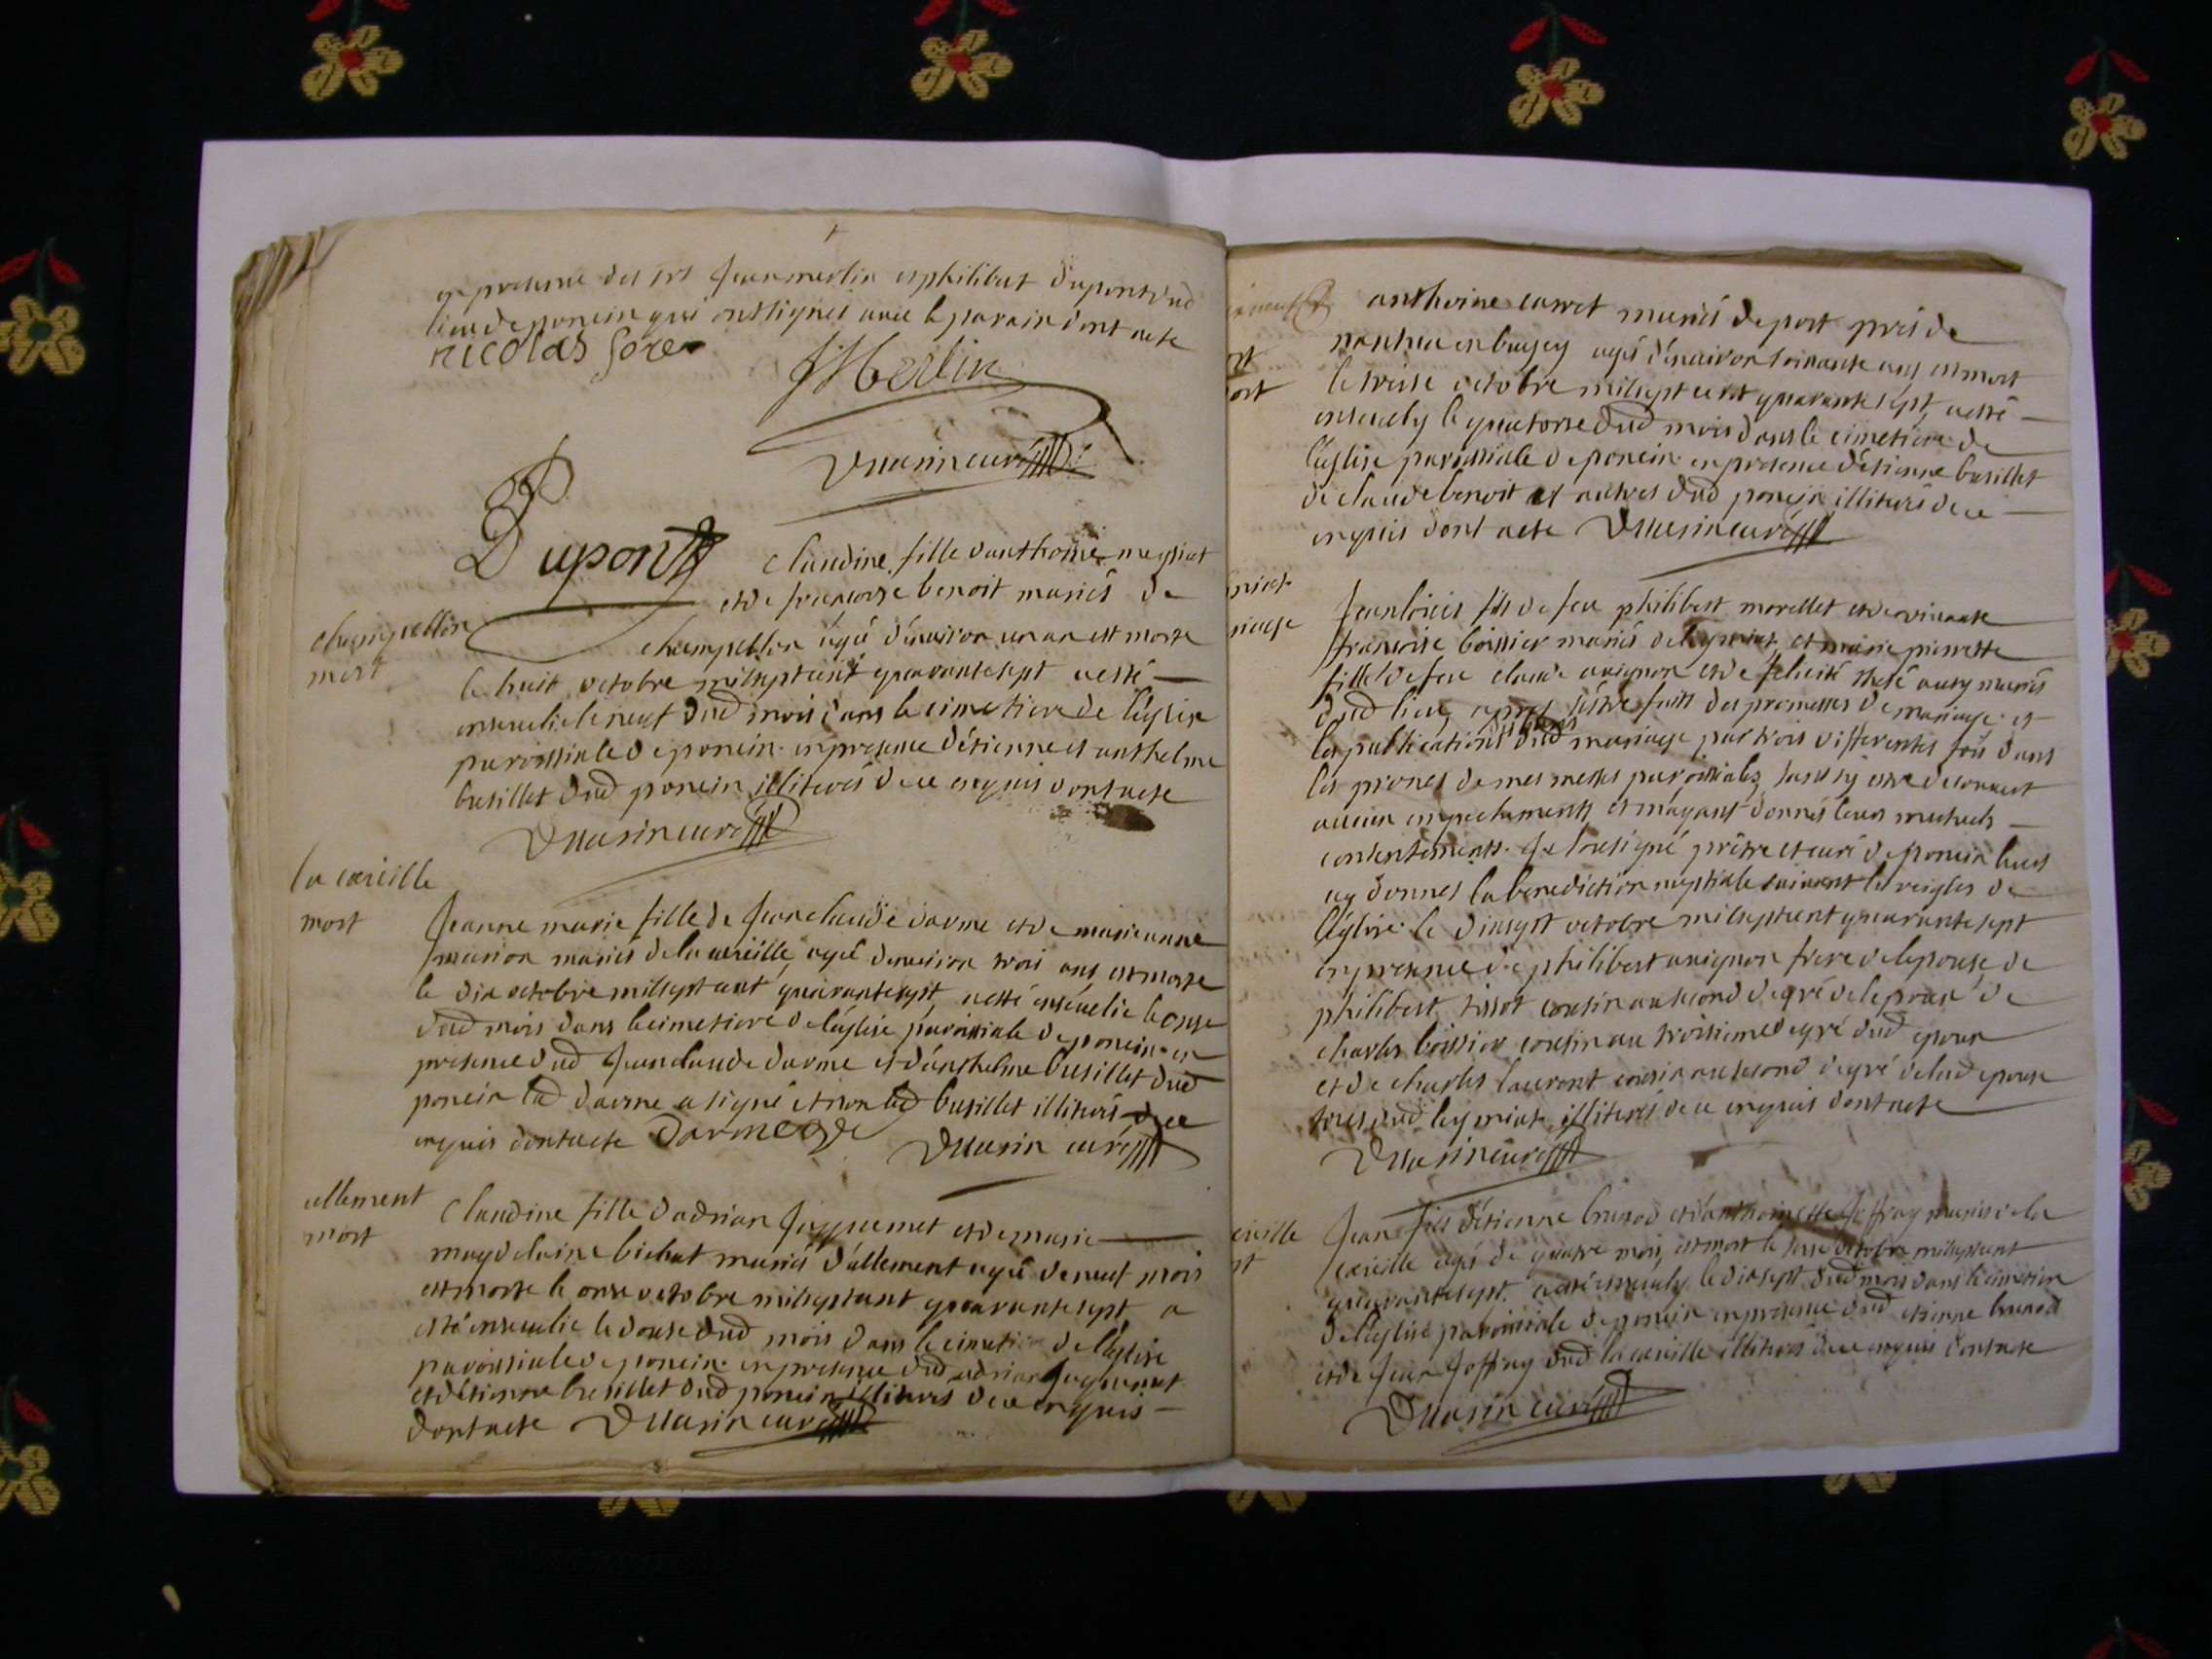 en presence des srs Jean merlin et philibert dupont dud
lieu de poncin qui ont signés avec le parain dont acte
nicolas gore
JMerlin
Dmasin curé
Dupont
Claudine fille d'anthoine
et de francoise benoit mariés de
champellon
mort
champellon agé d'environ un an est morte
le huit octobre mil sept cent quarante sept a esté
ensevelie le neuf dud mois dans le cimetiere de l'eglise
paroissiale de poncin en presence d'etienne et anthelme
busillet dud poncin illiterés de ce enquis dont acte
Dmasin curé
la cueille
mort
Jeanne marie fille de Jean claude darme et de marie anne
marion mariés de la cueille agé d'environ trois ans est morte
le dix octobre mil sept cent quarante sept a esté ensevelie le onze
dud mois dans le cimetiere de l'eglise paroissiale de poncin en
presence dud Jean claude darme et d'anthelme busillet dud
poncin led darme a signé et non led busillet illiterés de ce
enquis dont acte Darme Dmasin curé
allement
mort
Claudine fille d'adrian Jugnemet et de marie
magdelaine bichat mariés d'allement agé de neuf mois
est morte le onze octobre mil sept cent quarante sept a
esté ensevelie le douse dud mois dans le cimetiere de l'eglise
paroissiale de poncin en presence dud adrian
et d'etienne busillet dud poncin illiterés de ce enquis
dont acte Dmasin curé
anthoine carret mariés de port prés de
nantua en bugey agé d'environ soixante ans est mort
le treise octobre mil sept cent quarante sept a esté
ensevely le quatorse dud mois dans le cimetiere de
l'eglise paroissiale de poncin en presence d'etienne busillet
de claude benoit et autres dud poncin illiterés de ce
enquis dont acte Dmasin curé
Jean louis fils de feu philibert morellet et de vivante
francoise boissier mariés de leymiat et marie pierrette
fille de feu claude avignon et de felicité tissot aussy mariés
dud lieu apres s'estre faits des promesses de mariage et
les publications dud mariage par trois differentes fois dans
les prones de mes messes paroissiales sans sy estre decouvert
aucun empechements et m'ayant donnés leurs mutuels
consentements Je soussigné prêtre et curé de poncin leurs
ay donnés la benediction nuptiale suivant les reigles de
l'eglise le dixsept octobre mil sept cent quarante sept
en presence de philibert avignon frere de lepouse de
philibert tissot cousin au second degré de lepoux de
charles boissier cousin au troisieme degré dud epoux
et de charles laurent cousin au second degré de lad epouse
tous dud leymiat illiterés de ce enquis dont acte
Dmasin curé
Jean fils d'etienne brunod et d'anthoinette Joffray mariés de la
cueille agé de quatre mois est mort le seise octobre mil sept cent
quarante sept a esté ensevely le dixsept dud mois dans le cimetiere
de l'eglise paroissiale de poncin en presence dud etienne brunod
et de Jean Joffray dud la cueille illiterés de ce enquis dont acte
Dmasin curé